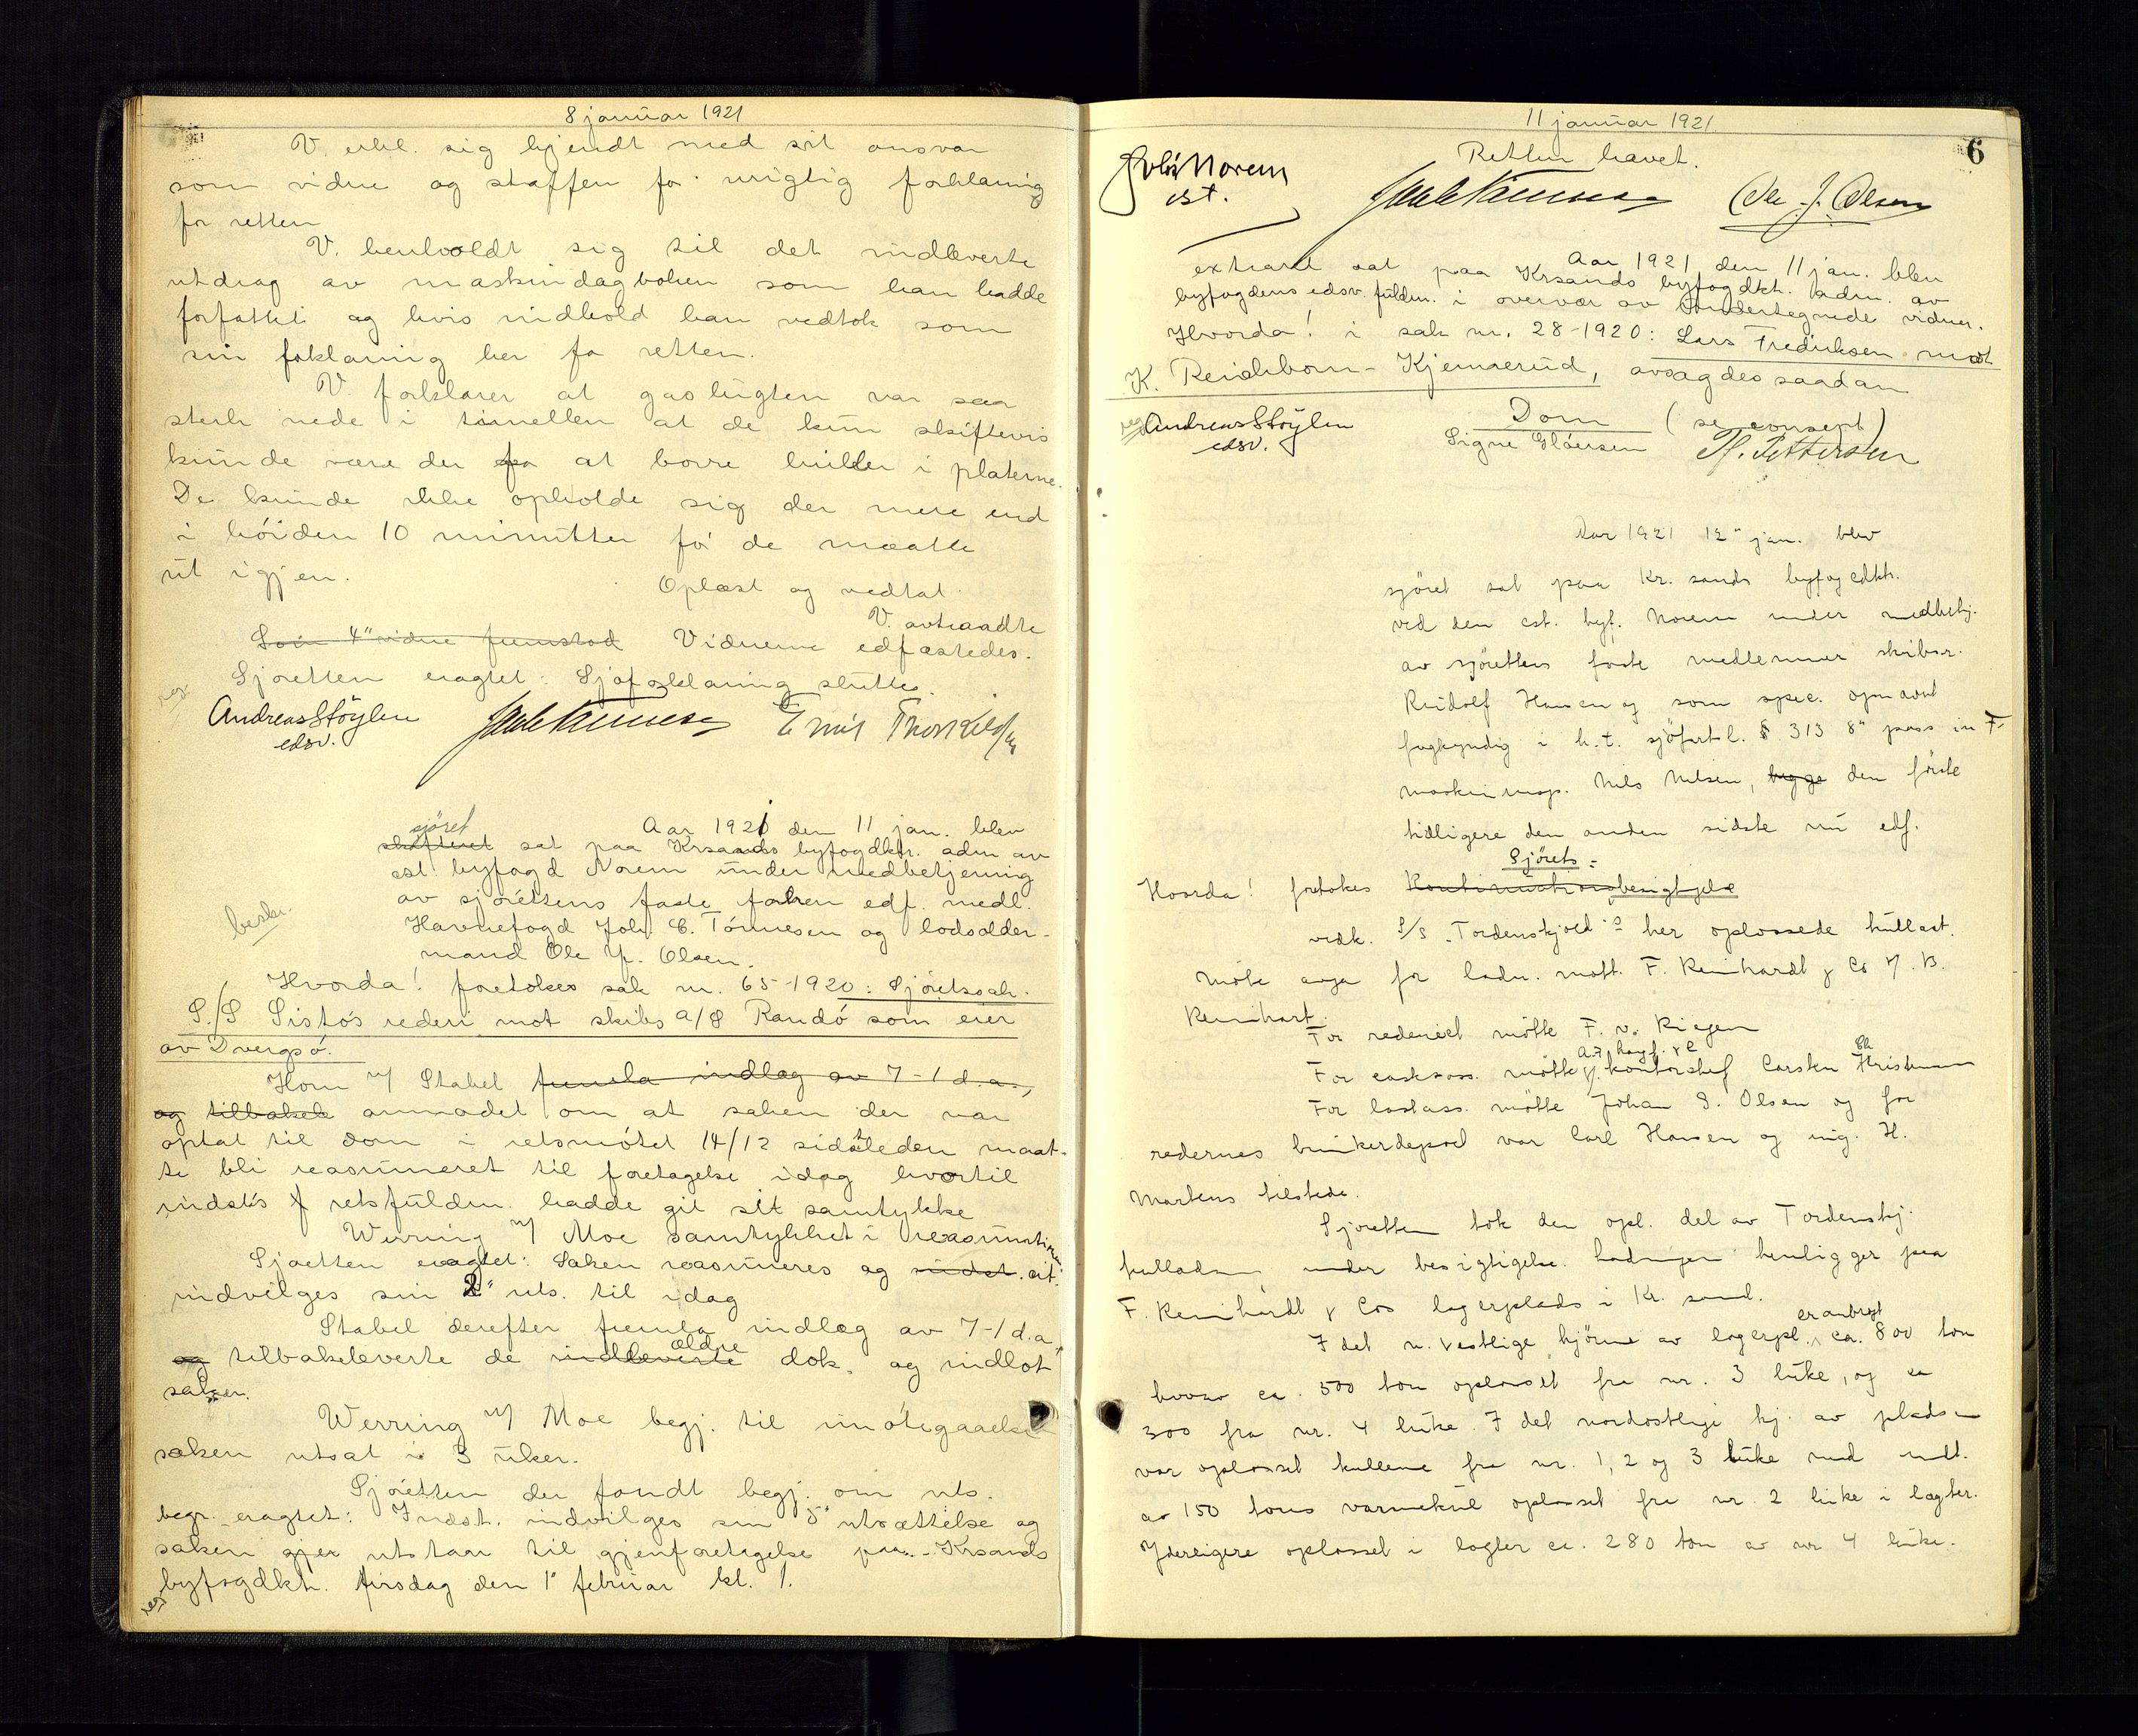 8 januar 1921
V. erkl. sig kjendt med sit ansvar
som vidne og staffen for urigtig forklaring
for retten
V. henholdt sig til det indleverte
utdrag av maskindagboken som han hadde
forfattet og hvis indhold han vedtok som
sin foklaring her for retten.
V. forklarer at gaslugten var saa
sterk nede i tunnellen at de kun skiftevis
kunde være der fo at borre huller i platerne.
De kunde ikke opholde sig der mere end
i høiden 10 minutter før de maatte
ut igjen.
Oplæst og vedtat
V. avtraadte
Som 4" vidne fremstod Vidnerne edfæstedes.
Sjøretten eragtet: Sjøforklaring sluttes.
reg.
Andreas Støylen
edsv.
Emil Thorkelsen
Aar 1921 den 11 jan. blev
sjøret
skifteret sat paa Krsands byfogdktr. adm av
cst. byfogd Norem under medbetjening
av sjørettens faste forhen edf. medl.
Havnefogd Joh. C. Tønnesen og lodsolder-
mand Ole J. Olsen.
beskr.
Hvorda! foretokes sak nr. 65-1920: Sjøretssak.
S/S Sisto's rederi mot skibs a/s Randø som eier
av Dvergsø.
Horn v/ Stabel fremla indlæg av 7-1 d.a.,
og tilbakele anmodet om at saken der var
optat til dom i retsmøtet 14/12 sidstleden maat-
te bli reasumeret til foretagelse idag hvortil
indst's f retsfuldm. hadde git sit samtykke
Werring v/ Moe samtykket i reasumtionen
Sjøretten eragtet: Saken reasumeres og indst. cit.
indvilges sin 2" uts. til idag
Stabel derefter fremla indlæg av 7-1 d.a.,
ældre
og tilbakeleverte de indleverte dok. og indlot
saken.
Werring v/ Moe begj. til imøtegaaelse
saken utsat i 3 uker.
Sjøretten der fandt begj. om uts.
begr. eragtet: Indst. indvilges sin 5" utsættelse og
saken gjen utstaar til gjenforetagelse paa Krsands
byfogdktr. tirsdag den 1" februar kl. 1.
reg
11 januar 1921
6
Retten hævet.
Norem
cst.
Ole J. Olsen
Aar 1921 den 11 jan. blev
extraret sat paa Krsands byfogdktr. adm. av
byfogdens edsv. fuldm. i overvær av undertegnede vidner.
Hvorda! i sak nr. 28-1920: Lars Fredriksen mot
K. Reichborn-Kjennerud, avsagdes saadan
Dom (se consept)
reg
Andreas Støylen
edsv.
Signe Glausen
H. Pettersen
Aar 1921 12" jan. blev
sjøret sat paa Kr.sands byfogedktr.
ved den cst. byf. Norem under medbetj.
av sjørettens faste medlemmer skibsr.
Rudolf Hansen og som spec. opnævnt
fagkyndig i h.t. sjøfartsl. § 313 8" pass in F.
maskininsp. Nils Nilsen, begge den første
tidligere den anden sidste nu edf.
Sjørets-
Hvorda! foretokes Kontinuationsbesigtigelse
vedk. S/S "Tordenskjold"s her oplossede kullast.
Møte avga for ladn. mott. F. Reinhardt & Co M. B.
Reinhart.
For rederiet møtte F. v. Riegen
For caskoass. møtte kontorchef Carsten Christensen
For lastass. møtte Johan S. Olsen og for
redernes bunkerdepot var Carl Hansen og ing. H.
Martens tilstede.
Sjøretten tok den opl. del av Tordenskj.
kulladn. under besigtigelse. Ladningen henligger paa
F. Reinhardt & Cos lagerplads i Kr.sand.
er anbragt
I det n. vestlige hjørne av lagerpl. ca. 800 ton
hvorav ca. 500 ton oplosset fra nr. 3 luke, og ca
300 fra nr. 4 luke. I det nordøstlige hj. av pladsen
var oplosset kullene fra nr. 1, 2 og 3 luke med undt.
av 150 tons varmekul oplosset fra nr. 2 luke i lægter.
Yderligere oplosset i lægter ca. 280 ton av nr 4 luke.